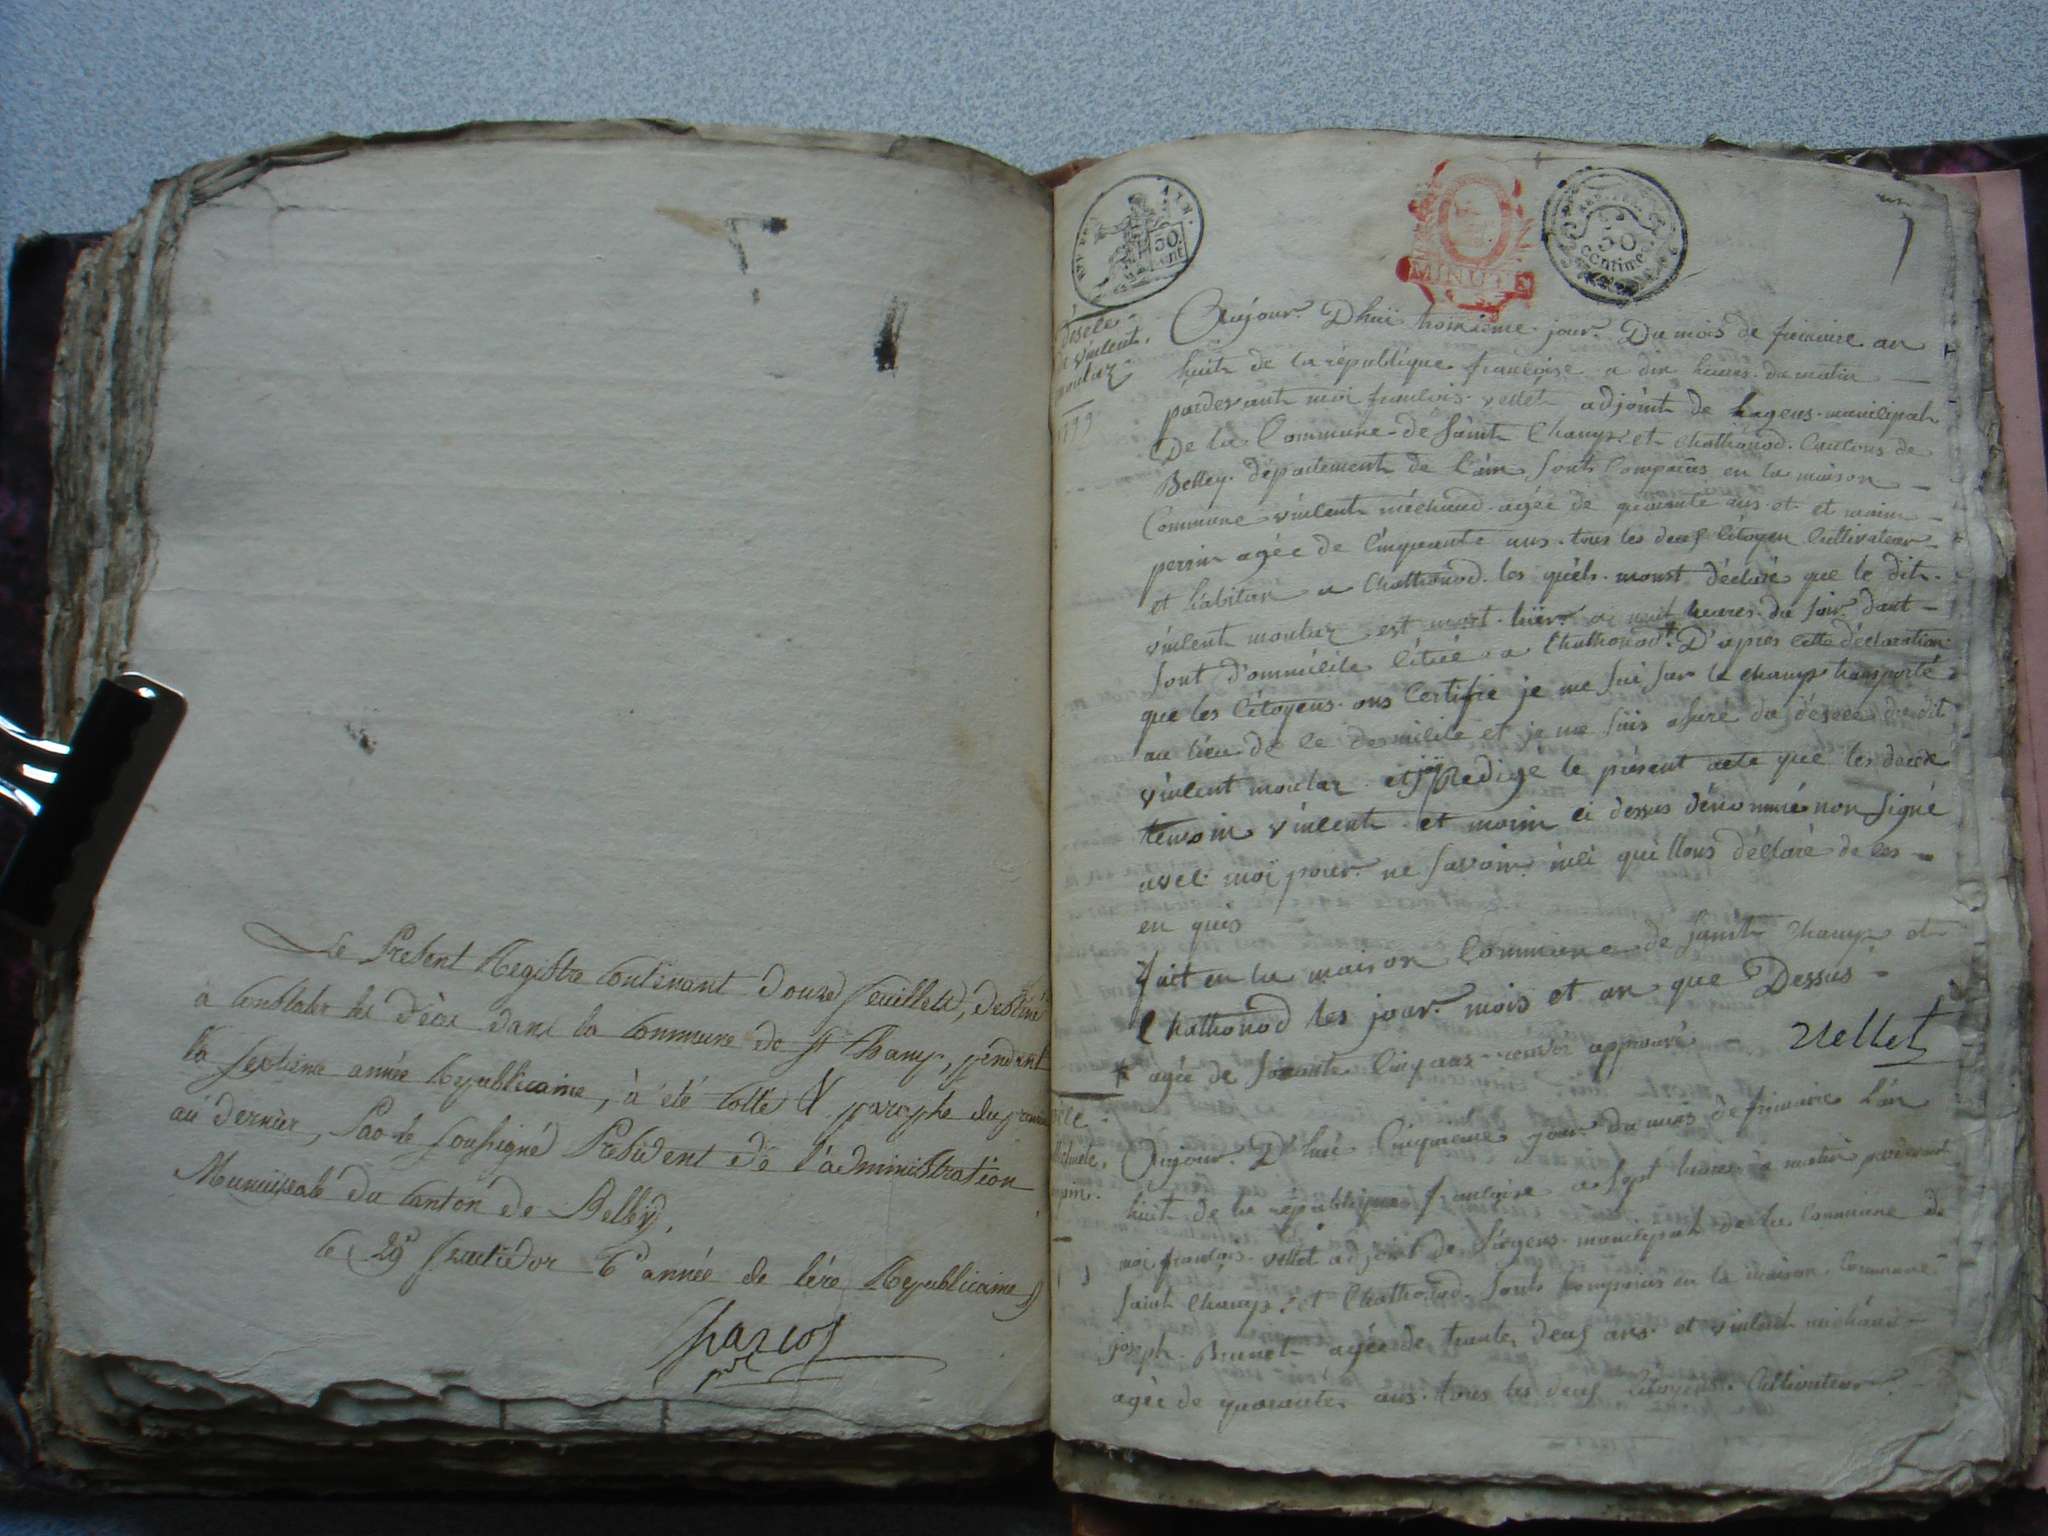 Le Present Registre Contenant douze feuillets, destiné
à Constater les décès dans la Commune de St Champ, pendant
la septieme année Republicaine, à été Cotté & paraphé du premier
au dernier, Par le soussigné President de l'administration
Municipale du Canton de Belley,
le 29e fructidor 6e année de l'ère Republicaine
50
cent
MINUTE
50
Centime
désele
de vinlent
moutaz
1799
Aujour Dhui troisieme jour Du mois de frimaire an
huit de la république francoise a dix heures du matin
pardevant moi francois vellet adjoint de lagens municipal
De la Commune de saint Champ et Chathonod Cantons de
Belley département de l'ain sont Comparus en la maison
Commune vinlent michaud agée de quarante ans et et
perrin agée de Cinquante ans tous les deus Citoyen Cultivateur
et habitan a Chathonod les quels monst déclaré que le dit
vinlent moutaz est mort hier a huit heures du soir dant
sont d'omicile Citué a Chathonod + D'apres Cette déclaration
que les Citoyens ons Certifié je me sui sur le champ transporté
au lieu de Ce domicile et je me suis asuré du désée du dit
vinlent moutaz et jai Redigé le présent acte que les deux
temoin vinlent et ci dessus dénommé non signé
avec moi pour ne savoir qui llons déclaré de Ces
en quis
fait en la maison Commune de saint Champ et
Chathonod les jour mois et an que Dessus
Vellet
+ agée de soixante Cinq ans renvoi approuvé
Aujour D'hui Cinquieme jour du mois de frimaire l'an
huit de la république francoise a sept heures matin pardevant
moi francois vellet adjoint de l'agens municipal de la Commune de
saint Champ et Chathonod sont Comparus en la maison Commune
joseph Brunet agée de trante deus ans et vinlent michaud
agée de quarante ans tous les deus Citoyens Cultivateur